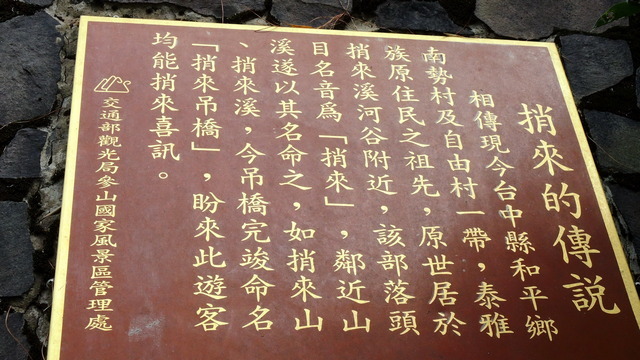 捎來的傳説
相傳現今台中縣和平鄉
南勢村及自由村一帶，泰雅
族原住民之祖先，原世居於
捎來溪河谷附近，該部落頭
目名音爲「捎來」，鄰近山
溪遂以其名命之，如捎來山
、捎來溪，今吊橋完竣命名
「捎來吊橋」，盼來此遊客
均能捎來喜訊。
交通部觀光局參山國家風景區管理處